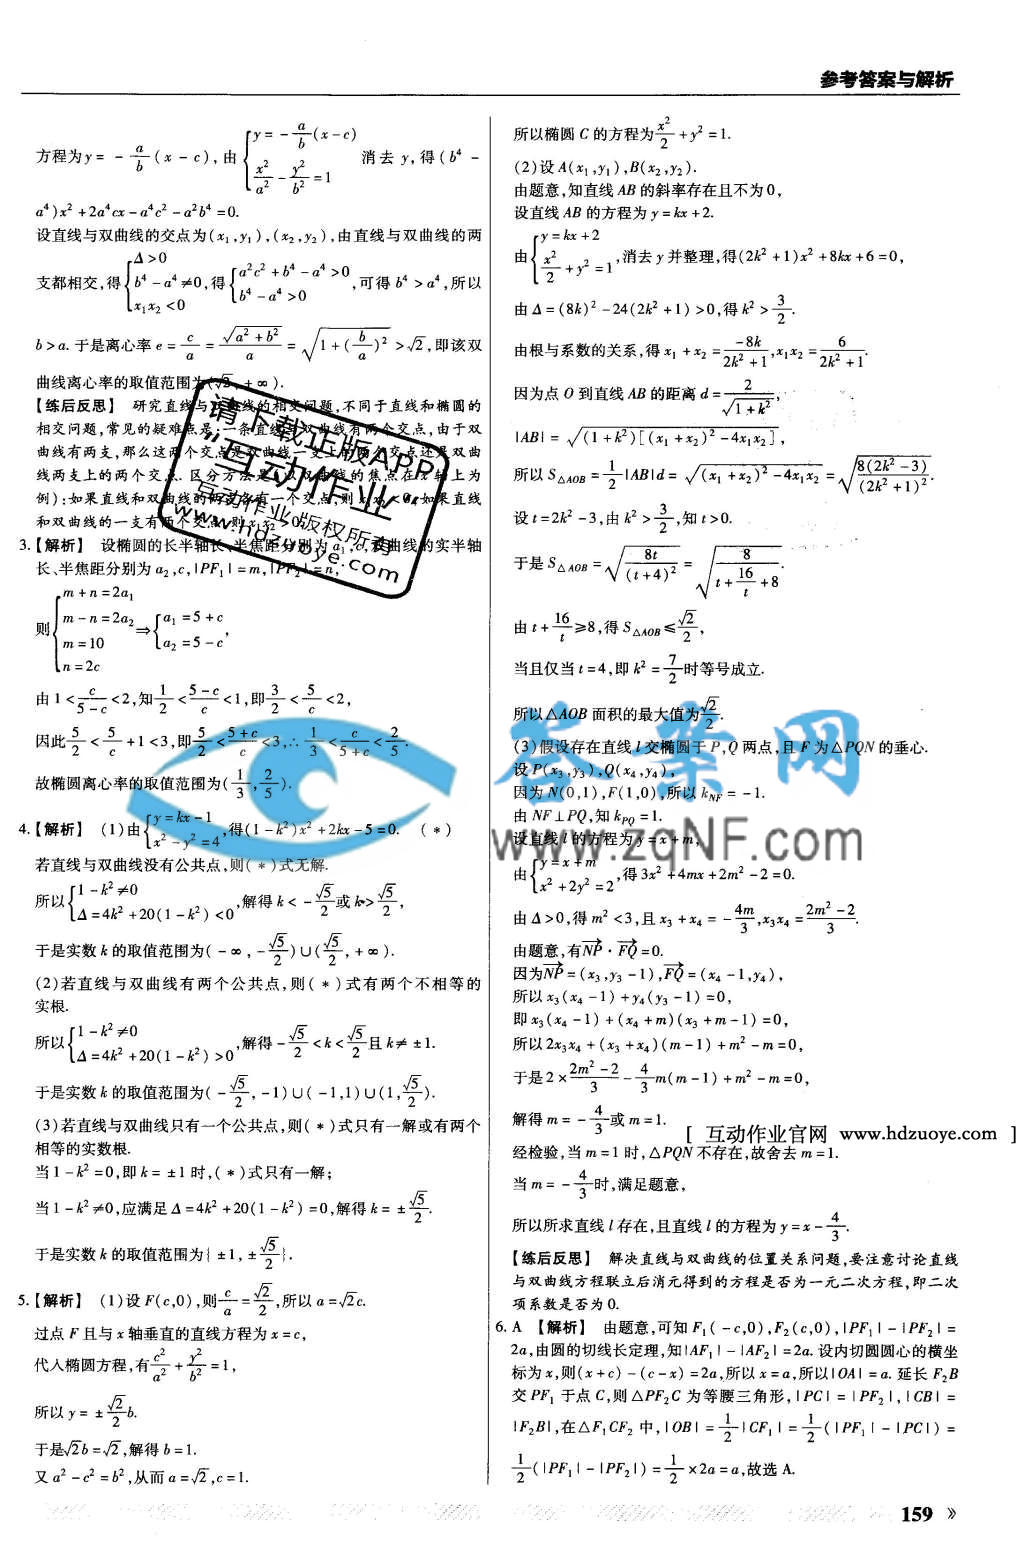 参考答案与解析
方程为y = -\frac{a}{b}(x-c),由{y=-\frac{a}{b}(x-c) \frac{x²}{a²}-\frac{y²}{b²}=1 消去y,得(b⁴-
a⁴)x²+2a⁴cx-a⁴c²-a²b⁴=0.
设直线与双曲线的交点为(x₁,y₁),(x₂,y₂),由直线与双曲线的两
支都相交,得{Δ>0 b⁴-a⁴≠0, x₁x₂<0 得{a²c²+b⁴-a⁴>0 b⁴-a⁴>0 ,可得b⁴>a⁴,所以
b>a.于是离心率e=\frac{c}{a}=\frac{√(a²+b²)}{a}=√(1+(\frac{b}{a})²)>√2,即该双
曲线离心率的取值范围为(√2,+∞).
【练后反思】 研究直线与双曲线的相交问题,不同于直线和椭圆的
相交问题,常见的疑难点是:一条直线与双曲线有两个交点,由于双
曲线有两支,那么这两个交点是双曲线一支上的两个交点还是双曲
线两支上的两个交点.区分方法是(以双曲线的焦点在x轴上为
例):如果直线和双曲线的两支各有一个交点,则x₁x₂<0;如果直线
和双曲线的一支有两个交点,则x₁x₂>0.
3.【解析】 设椭圆的长半轴长、半焦距分别为a₁,c,双曲线的实半轴
长、半焦距分别为a₂,c,|PF₁|=m,|PF₂|=n,
则{m+n=2a₁ m-n=2a₂ m=10 n=2c ⇒{a₁=5+c a₂=5-c ,
由1<\frac{c}{5-c}<2,知\frac{1}{2}<\frac{5-c}{c}<1,即\frac{3}{2}<\frac{5}{c}<2,
因此\frac{5}{2}<\frac{5}{c}+1<3,即\frac{5}{2}<\frac{5+c}{c}<3,∴\frac{1}{3}<\frac{c}{5+c}<\frac{2}{5}.
故椭圆离心率的取值范围为(\frac{1}{3},\frac{2}{5}).
4.【解析】 (1)由{y=kx-1 x²-y²=4 ,得(1-k²)x²+2kx-5=0. (*)
若直线与双曲线没有公共点,则(*)式无解.
所以{1-k²≠0 Δ=4k²+20(1-k²)<0 ,解得k<-\frac{√5}{2}或k>\frac{√5}{2},
于是实数k的取值范围为(-∞,-\frac{√5}{2})∪(\frac{√5}{2},+∞).
(2)若直线与双曲线有两个公共点,则(*)式有两个不相等的
实根.
所以{1-k²≠0 Δ=4k²+20(1-k²)>0 ,解得-\frac{√5}{2}<k<\frac{√5}{2}且k≠±1.
于是实数k的取值范围为(-\frac{√5}{2},-1)∪(-1,1)∪(1,\frac{√5}{2}).
(3)若直线与双曲线只有一个公共点,则(*)式只有一解或有两个
相等的实数根.
当1-k²=0,即k=±1时,(*)式只有一解;
当1-k²≠0,应满足Δ=4k²+20(1-k²)=0,解得k=±\frac{√5}{2}.
于是实数k的取值范围为{±1,±\frac{√5}{2}}.
5.【解析】 (1)设F(c,0),则\frac{c}{a}=\frac{√2}{2},所以a=√2c.
过点F且与x轴垂直的直线方程为x=c,
代入椭圆方程,有\frac{c²}{a²}+\frac{y²}{b²}=1,
所以y=±\frac{√2}{2}b.
于是√2b=√2,解得b=1.
又a²-c²=b²,从而a=√2,c=1.
所以椭圆C的方程为\frac{x²}{2}+y²=1.
(2)设A(x₁,y₁),B(x₂,y₂).
由题意,知直线AB的斜率存在且不为0,
设直线AB的方程为y=kx+2.
由{y=kx+2 \frac{x²}{2}+y²=1 ,消去y并整理,得(2k²+1)x²+8kx+6=0,
由Δ=(8k)²-24(2k²+1)>0,得k²>\frac{3}{2}.
由根与系数的关系,得x₁+x₂=\frac{-8k}{2k²+1},x₁x₂=\frac{6}{2k²+1}.
因为点O到直线AB的距离d=\frac{2}{√(1+k²)},
|AB|=√((1+k²)[(x₁+x₂)²-4x₁x₂]),
所以S△AOB=\frac{1}{2}|AB|d=√((x₁+x₂)²-4x₁x₂)=√(\frac{8(2k²-3)}{(2k²+1)²}).
设t=2k²-3,由k²>\frac{3}{2},知t>0.
于是S△AOB=√(\frac{8t}{(t+4)²})=√(\frac{8}{t+\frac{16}{t}+8}).
由t+\frac{16}{t}≥8,得S△AOB≤\frac{√2}{2},
当且仅当t=4,即k²=\frac{7}{2}时等号成立.
所以△AOB面积的最大值为\frac{√2}{2}.
(3)假设存在直线l交椭圆于P,Q两点,且F为△PQN的垂心.
设P(x₃,y₃),Q(x₄,y₄),
因为N(0,1),F(1,0),所以k_NF=-1.
由NF⊥PQ,知k_PQ=1.
设直线l的方程为y=x+m,
由{y=x+m x²+2y²=2 ,得3x²+4mx+2m²-2=0.
由Δ>0,得m²<3,且x₃+x₄=-\frac{4m}{3},x₃x₄=\frac{2m²-2}{3}.
由题意,有\vec{NP}·\vec{FQ}=0.
因为\vec{NP}=(x₃,y₃-1),\vec{FQ}=(x₄-1,y₄),
所以x₃(x₄-1)+y₄(y₃-1)=0,
即x₃(x₄-1)+(x₄+m)(x₃+m-1)=0,
所以2x₃x₄+(x₃+x₄)(m-1)+m²-m=0,
于是2×\frac{2m²-2}{3}-\frac{4}{3}m(m-1)+m²-m=0,
解得m=-\frac{4}{3}或m=1.
经检验,当m=1时,△PQN不存在,故舍去m=1.
当m=-\frac{4}{3}时,满足题意,
所以所求直线l存在,且直线l的方程为y=x-\frac{4}{3}.
【练后反思】 解决直线与双曲线的位置关系问题,要注意讨论直线
与双曲线方程联立后消元得到的方程是否为一元二次方程,即二次
项系数是否为0.
6. A 【解析】 由题意,可知F₁(-c,0),F₂(c,0),|PF₁|-|PF₂|=
2a,由圆的切线长定理,知|AF₁|-|AF₂|=2a.设内切圆圆心的横坐
标为x,则(x+c)-(c-x)=2a,所以x=a,所以|OA|=a.延长F₂B
交PF₁于点C,则△PF₂C为等腰三角形,|PC|=|PF₂|,|CB|=
|F₂B|,在△F₁CF₂中,|OB|=\frac{1}{2}|CF₁|=\frac{1}{2}(|PF₁|-|PC|)=
\frac{1}{2}(|PF₁|-|PF₂|)=\frac{1}{2}×2a=a,故选A.
请下载正版APP
“互动作业”
互动作业 版权所有
www.hdzuoye.com
答案网
www.zqNF.com
[ 互动作业官网 www.hdzuoye.com ]
159 »